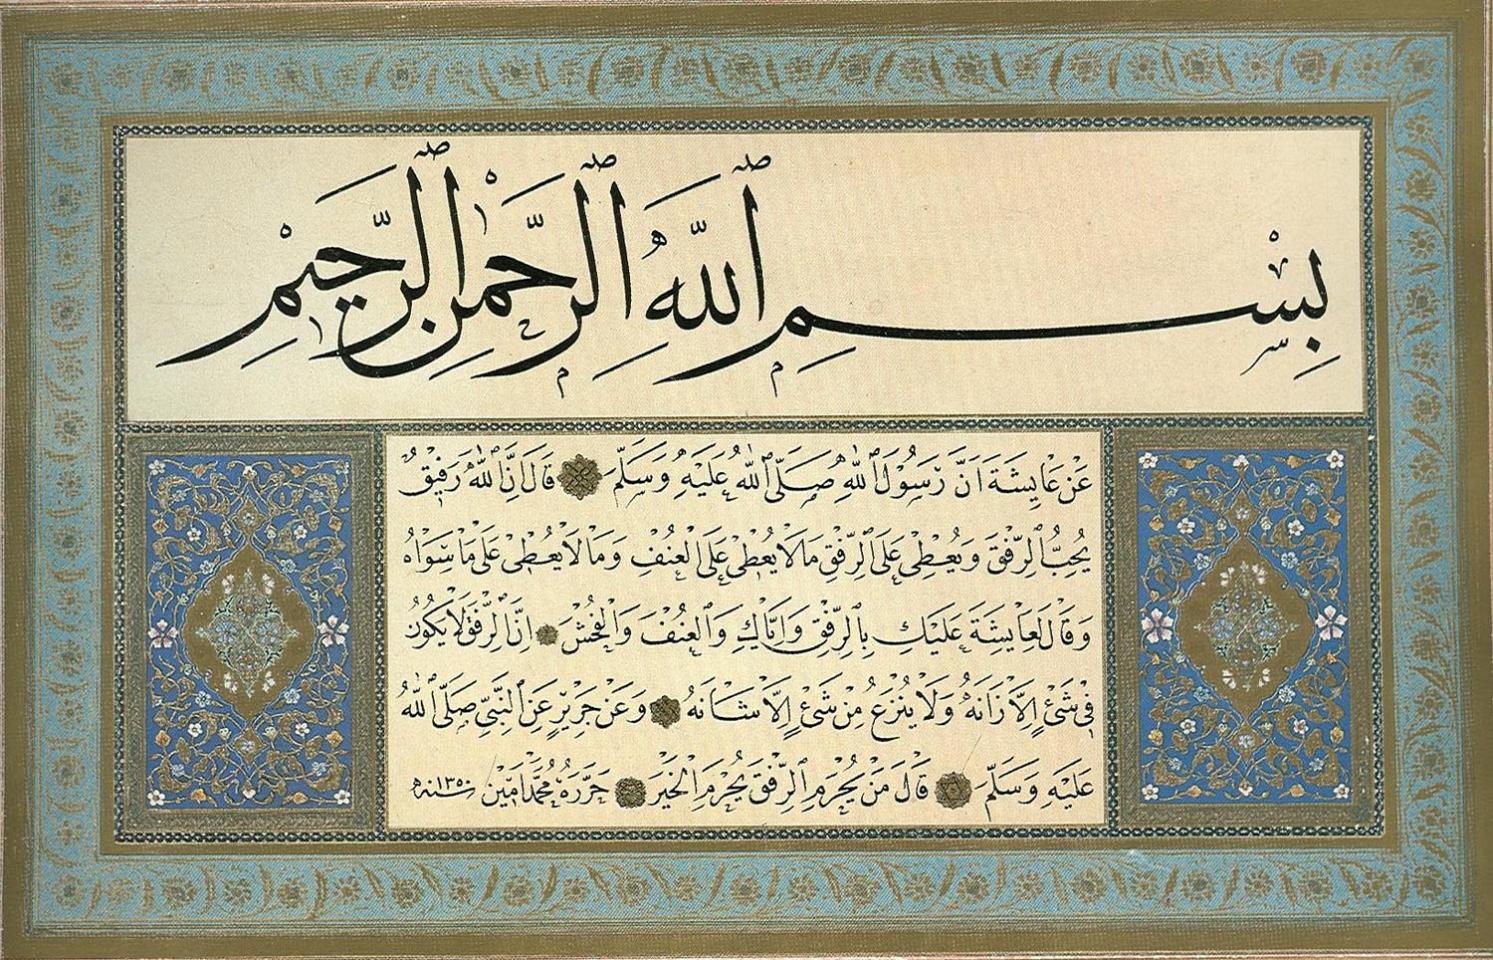 بِسْمِ ٱللّٰهِ ٱلرَّحْمٰنِ ٱلرَّحِيمِ
عَنْ عَايِشَةَ اَنَّ رَسُوْلَ ٱللّٰهِ صَلَّى ٱللّٰهُ عَلَيْهِ وَسَلَّمَ قَالَ اِنَّ ٱللّٰهَ رَفِيْقٌ
يُحِبُّ ٱلرِّفْقَ وَيُعْطِىْ عَلَى ٱلرِّفْقِ مَا لَا يُعْطِىْ عَلَى الْعُنُفِ وَمَا لَا يُعْطِىْ عَلَى مَا سِوَاهُ
وَقَالَ لِعَايِشَةَ عَلَيْكِ بِالرِّفْقِ وَاِيَّاكِ وَٱلْعُنُفَ وَالْفُحْشَ اِنَّ ٱلرِّفْقَ لَا يَكُوْنُ
فِى شَىْءٍ اِلَّا زَانَهُ وَلَا يُنْزَعُ مِنْ شَىْءٍ اِلَّا شَانَهُ وَعَنْ جَرِيْرٍ عَنِ ٱلنَّبِىِّ صَلَّى ٱللّٰهُ
عَلَيْهِ وَسَلَّمَ قَالَ مَنْ يُحْرَمِ ٱلرِّفْقَ يُحْرَمِ الْخَيْرَ حَرَّرَهُ مُحَمَّد اَمِيْن سنه ١٣٥٠ هـ